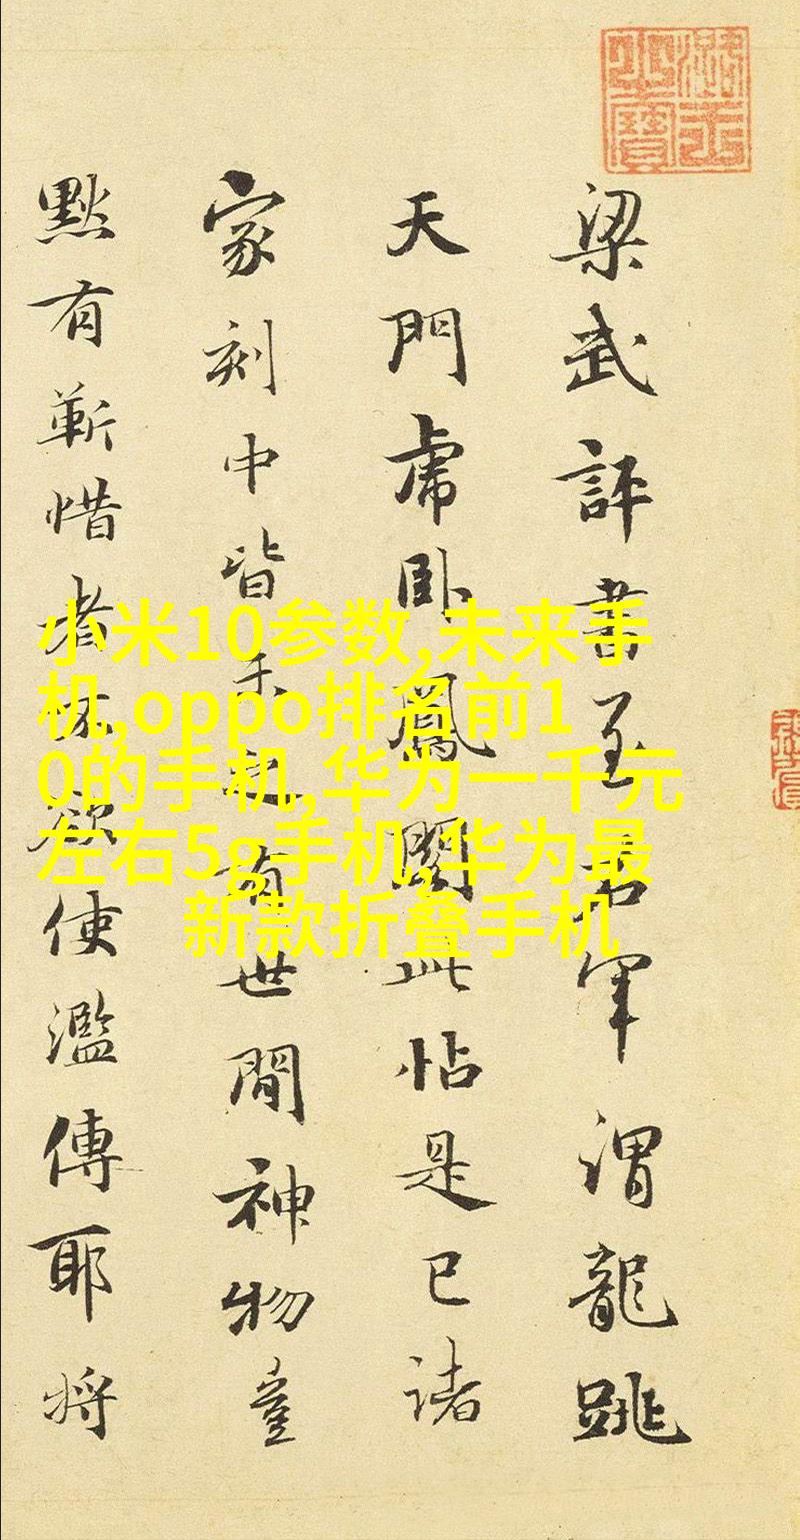 梁武評書至右軍謂龍跳
天門虎卧鳳閣此帖是已諸
家刻中皆未之有世間神物豈
默有靳惜者不欲使濫傳耶將
小米10参数,未来手
机,oppo排名前1
0的手机,华为一千元
左右5g手机,华为最
新款折叠手机